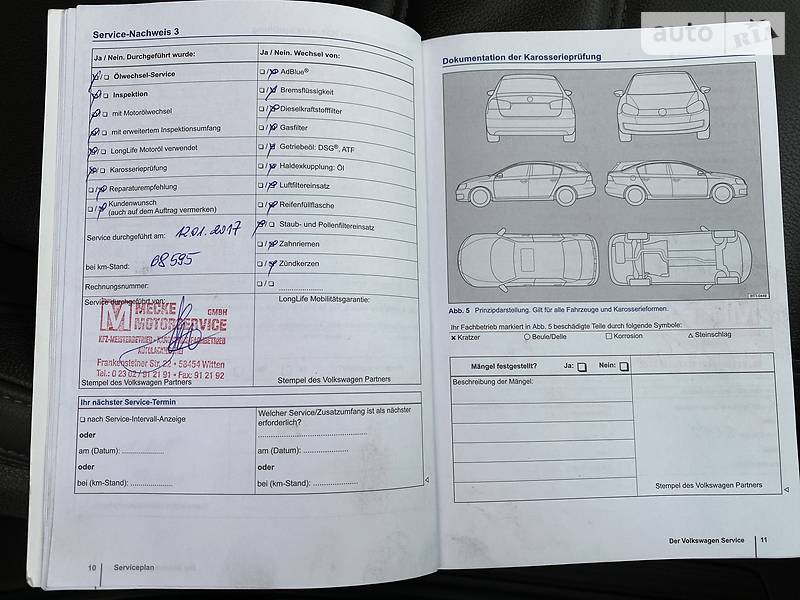 auto RIA
Service-Nachweis 3
Ja / Nein. Durchgeführt wurde:
Ölwechsel-Service
Inspektion
mit Motorölwechsel
mit erweitertem Inspektionsumfang
LongLife Motoröl verwendet
Karosserieprüfung
Reparaturempfehlung
Kundenwunsch
(auch auf dem Auftrag vermerken)
Service durchgeführt am: 12.01.2017
bei km-Stand: 68595
Rechnungsnummer:
Service durchgeführt von:
M MECKE GMBH
MOTORSERVICE
Frankensteiner Str. 22 • 58454 Witten
Tel.: 0 23 02 / 91 21 91 • Fax: 91 21 92
Stempel des Volkswagen Partners
Ja / Nein. Wechsel von:
AdBlue®
Bremsflüssigkeit
Dieselkraftstofffilter
Gasfilter
Getriebeöl: DSG®, ATF
Haldexkupplung: Öl
Luftfiltereinsatz
Reifenfüllflasche
Staub- und Pollenfiltereinsatz
Zahnriemen
Zündkerzen
LongLife Mobilitätsgarantie:
Stempel des Volkswagen Partners
Ihr nächster Service-Termin
nach Service-Intervall-Anzeige
oder
am (Datum): ....................
oder
bei (km-Stand): ....................
Welcher Service/Zusatzumfang ist als nächster
erforderlich?
am (Datum): ....................
oder
bei (km-Stand): ....................
10 Serviceplan
Dokumentation der Karosserieprüfung
Abb. 5 Prinzipdarstellung. Gilt für alle Fahrzeuge und Karosserieformen.
Ihr Fachbetrieb markiert in Abb. 5 beschädigte Teile durch folgende Symbole:
Kratzer Beule/Delle Korrosion Steinschlag
Mängel festgestellt? Ja: Nein:
Beschreibung der Mängel:
Stempel des Volkswagen Partners
Der Volkswagen Service 11